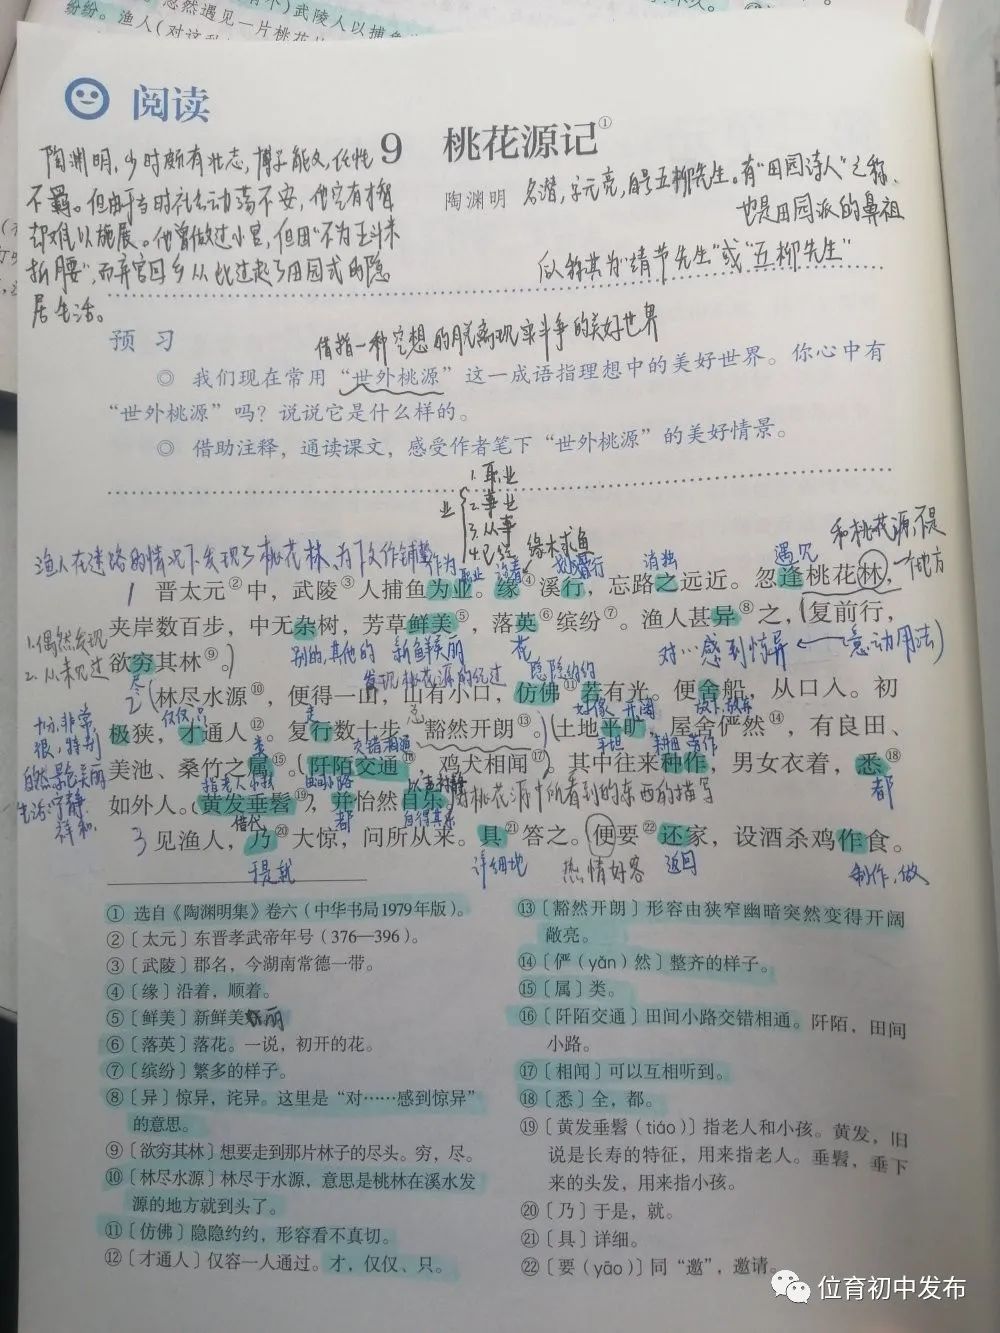 阅读
9 桃花源记①
陶渊明，少时颇有壮志，博学能文，任性
不羁。但由于当时社会动荡不安，他空有才智
却难以施展。他曾做过小官，但因"不为五斗米
折腰"，而弃官回乡从此过起了田园式的隐
居生活。
陶渊明 名潜，字元亮，自号五柳先生。有"田园诗人"之称，
也是田园派的鼻祖
后人称其为"靖节先生"或"五柳先生"
预 习
借指一种空想的脱离现实斗争的美好世界
◎ 我们现在常用“世外桃源”这一成语指理想中的美好世界。你心中有
“世外桃源”吗？说说它是什么样的。
◎ 借助注释，通读课文，感受作者笔下“世外桃源”的美好情景。
业
1.职业
2.事业
3.从事
4.已经
缘木求鱼
渔人在迷路的情况下发现了桃花林，为下文作铺垫
作为
职业
沿着
遇见
和桃花源不是
一个地方
1 晋太元②中，武陵③人捕鱼为业。缘④溪行，忘路之远近。忽逢桃花林，
夹岸数百步，中无杂树，芳草鲜美⑤，落英⑥缤纷⑦。渔人甚异⑧之，（复前行，
1.偶然发现
2.从未见过
欲穷其林⑨。）
别的，其他的
新鲜美丽
花
对…感到惊异
（意动用法）
尽
发现桃花源的经过
隐隐约约
2（林尽水源⑩，便得一山，山有小口，仿佛⑪若有光。便舍船，从口入。初
仅仅，只
走
好像
开阔
极狭，才通人⑫。复行数十步，豁然开朗⑬。）（土地平旷，屋舍俨然⑭，有良田、
十分，非常
很，特别
自然景色：美丽
生活：宁静，
祥和
类
交错相通
平坦
耕田劳作
美池、桑竹之属⑮。（阡陌交通⑯，鸡犬相闻⑰。其中往来种作，男女衣着，悉⑱
指老人小孩
田间小路
对桃花源中所看到的东西的描写
都
如外人。（黄发垂髫⑲），并怡然自乐。
借代
都
自得其乐
3 见渔人，乃⑳大惊，问所从来。具㉑答之。便要㉒还家，设酒杀鸡作食。
于是，就
详细地
热情好客
返回
制作，做
① 选自《陶渊明集》卷六（中华书局1979年版）。
②〔太元〕东晋孝武帝年号（376—396）。
③〔武陵〕郡名，今湖南常德一带。
④〔缘〕沿着，顺着。
⑤〔鲜美〕新鲜美丽
⑥〔落英〕落花。一说，初开的花。
⑦〔缤纷〕繁多的样子。
⑧〔异〕惊异，诧异。这里是“对……感到惊异”
的意思。
⑨〔欲穷其林〕想要走到那片林子的尽头。穷，尽。
⑩〔林尽水源〕林尽于水源，意思是桃林在溪水发
源的地方就到头了。
⑪〔仿佛〕隐隐约约，形容看不真切。
⑫〔才通人〕仅容一人通过。才，仅仅、只。
⑬〔豁然开朗〕形容由狭窄幽暗突然变得开阔
敞亮。
⑭〔俨（yǎn）然〕整齐的样子。
⑮〔属〕类。
⑯〔阡陌交通〕田间小路交错相通。阡陌，田间
小路。
⑰〔相闻〕可以互相听到。
⑱〔悉〕全，都。
⑲〔黄发垂髫（tiáo）〕指老人和小孩。黄发，旧
说是长寿的特征，用来指老人。垂髫，垂下
来的头发，用来指小孩。
⑳〔乃〕于是，就。
㉑〔具〕详细。
㉒〔要（yāo）〕同“邀”，邀请。
位育初中发布